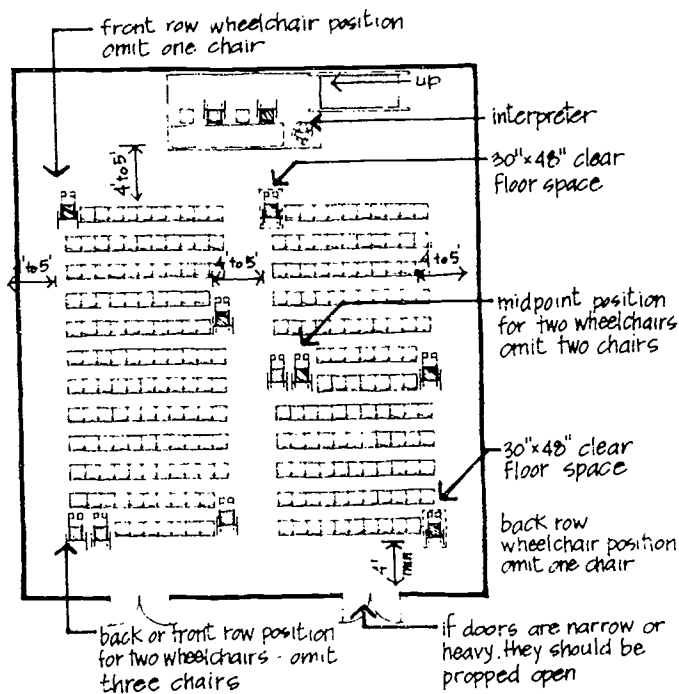 front row wheelchair position
omit one chair
up
interpreter
30"x48" clear
floor space
4' to 5'
' to 5'
4' to 5'
4' to 5'
midpoint position
for two wheelchairs
omit two chairs
30"x48" clear
floor space
back row
wheelchair position
omit one chair
4'
min
back or front row position
for two wheelchairs - omit
three chairs
if doors are narrow or
heavy, they should be
propped open